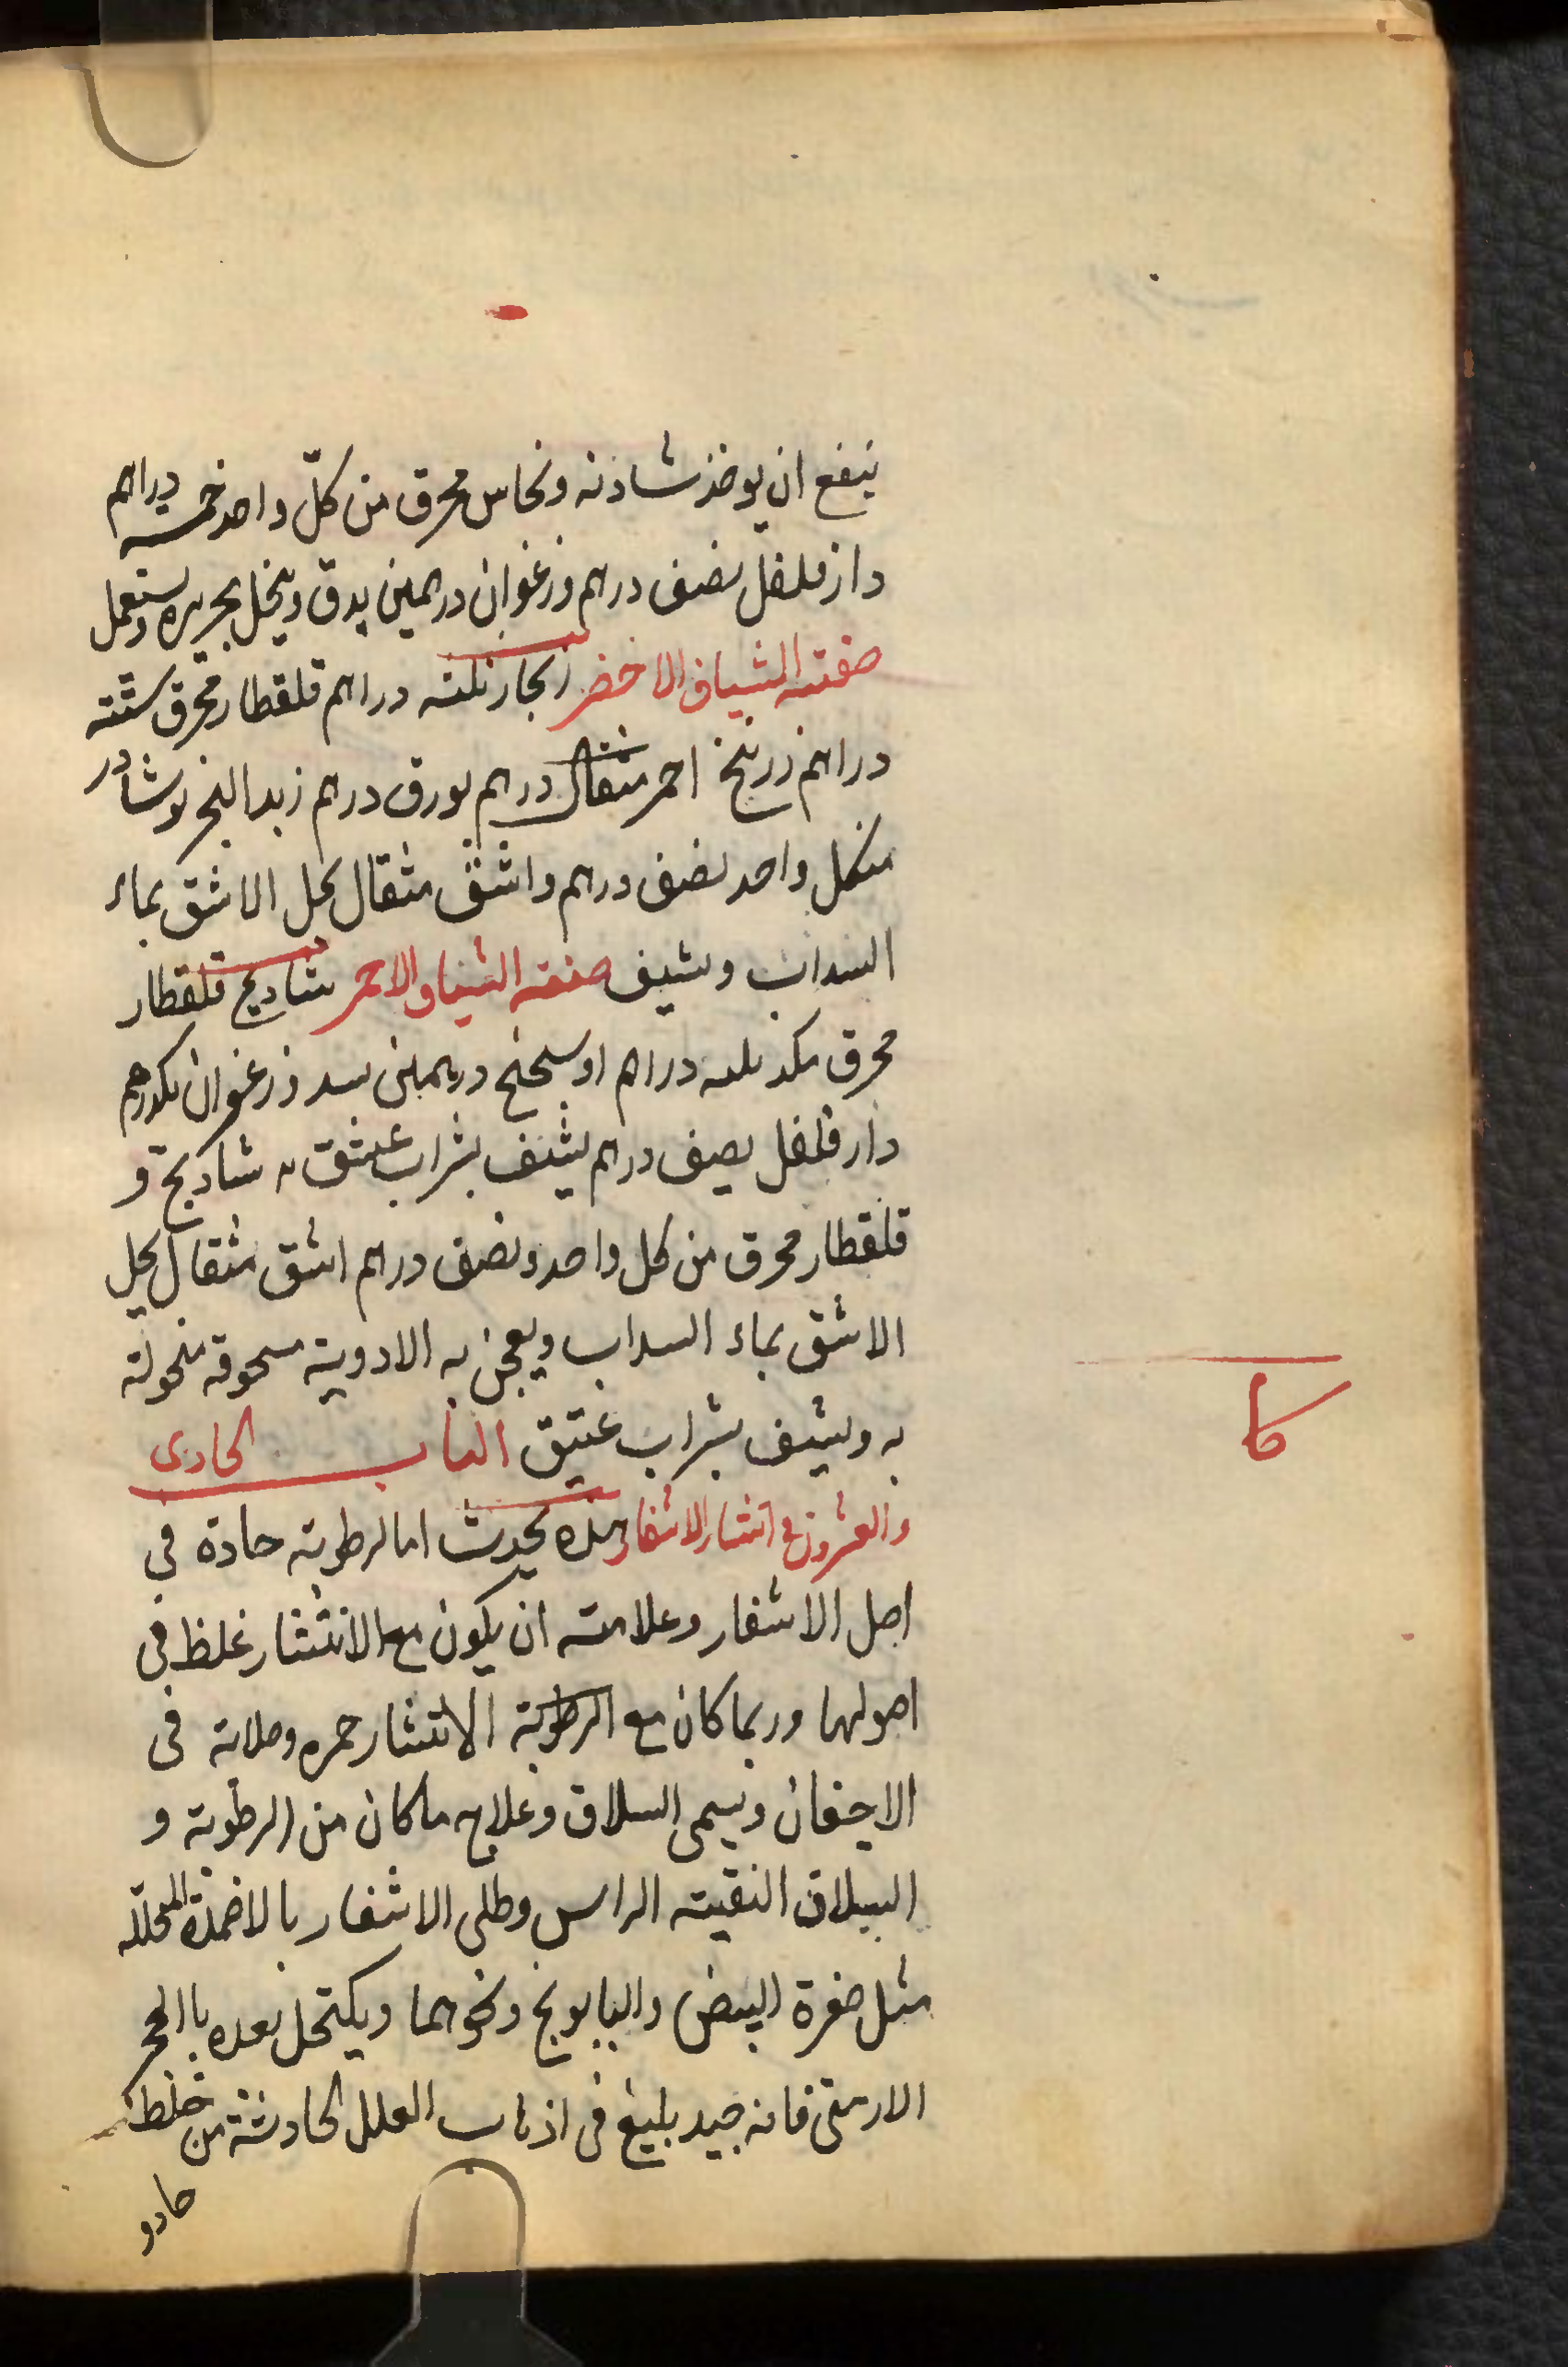 ينفع ان يوخذ شادنه ونحاس محرق من كلّ واحد خمسه دراهم
دارفلفل نصف درهم وزغفوان درهمين يدق وينخل بحريره ويستعمل
صفته الشياف الاخضر زنجار ثلثه دراهم قلقطار محرق ستته
دراهم زرنيخ احمر مثقال درهم بورق درهم زبد البحر نوشادر
منكل واحد نصف درهم واشق مثقال يحل الاشق بماء
السداب ويشيف صفته الشياف الاحمر شاديج قلقطار
محرق مكد ثلثه دراهم اوسنحتج درهمين بسد وزغفوان مكدرهم
دار فلفل نصف درهم يشيف بشراب عتيق شاديج و
قلقطار محرق من كل واحد ونصف درهم اشق مثقال يحل
الاشق بماء السداب ويعجن به الادوية مسحوقه منخولته
به ويشيف بشراب عتيق الباب الحادى
كا
والعشرون فى انتثار الاشفار هذه يحدث اما لرطوبته حادة فى
اصل الاشفار وعلامته ان يكون مع الانتثار غلظ فى
اصولها وربما كان مع الرطوبة الانتثار حمره وصلابه فى
الاجفان ويسمى السلاق وعلاج ما كان من الرطوبة و
السلاق النقيته الراس وطلى الاشفار بالاضمدة المحلله
مثل صفرة البيض والبابونج ونحوهما ويكتحل بعده باالحجر
الارمنى فانه جيد بليغ فى اذهاب العلل الحادثة من خلط
حادو